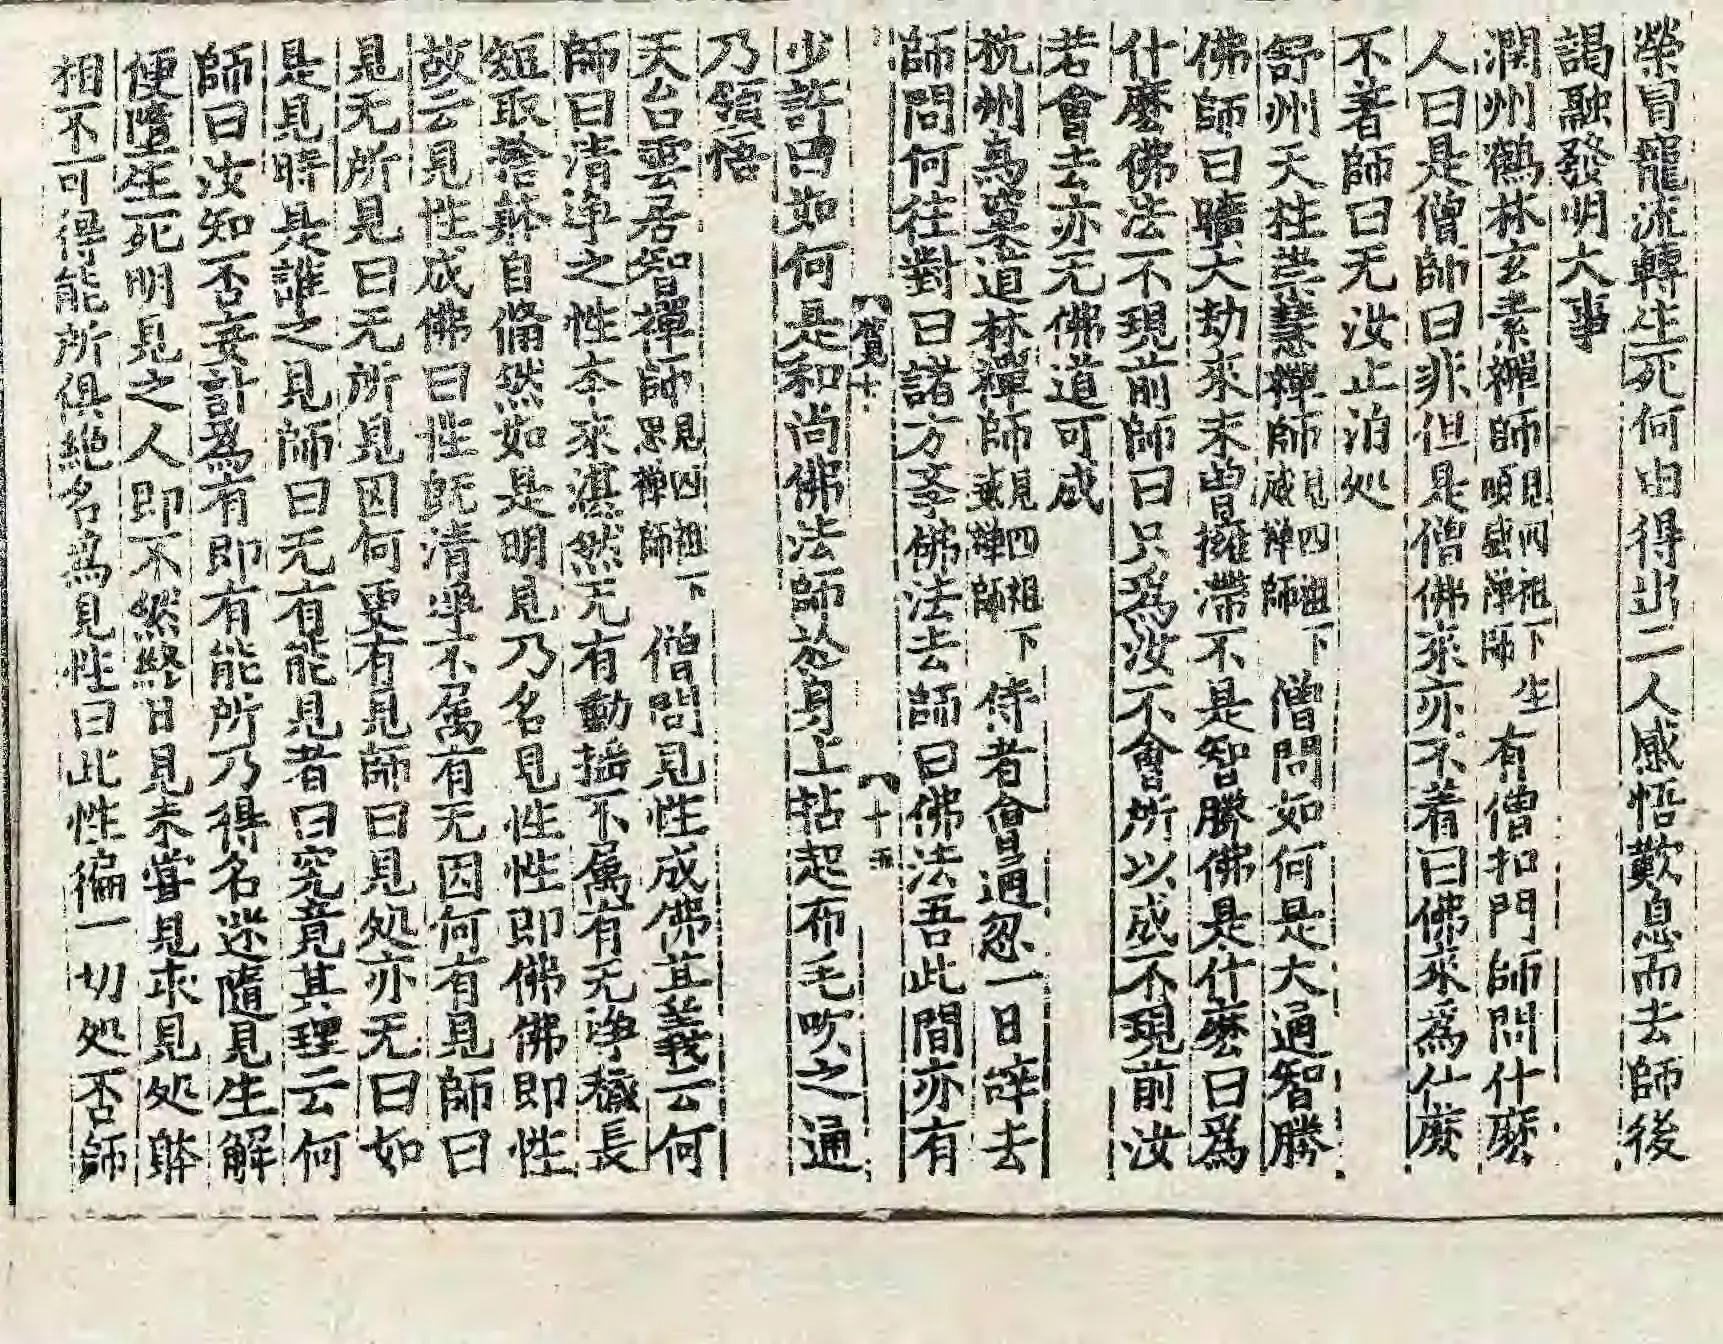 榮冒寵流轉生死何由得出二人感悟歎息而去師後
謁融發明大事
潤州鶴林玄素禪師見四祖下生有僧扣門師問什麽
人曰是僧師曰非但是僧佛來亦不着曰佛來爲什麽
不著師曰无汝止泊処
舒州天柱崇慧禪師見四祖下威禅師僧問如何是大通智勝
佛師曰曠大劫來未曾擁滯不是智勝佛是什麽曰爲
什麽佛法不現前師曰只爲汝不會所以成不現前汝
若會去亦无佛道可成
杭州鳥窠道林禪師見四祖下禅師侍者會通忽一日辞去
師問何往對曰諸方学佛法去師曰佛法吾此間亦有
賀十 十五
少許曰如何是和尚佛法師於身上拈起布毛吹之通
乃領悟
天台雲居智禪師見四祖下禅師僧問見性成佛其義云何
師曰清净之性夲來湛然无有動揺不属有无净穢長
短取捨躰自翛然如是明見乃名見性性即佛佛即性
故云見性成佛曰性旣清净不属有无因何有見師曰
見无所見曰无所見因何更有見師曰見処亦无曰如
是見時是誰之見師曰无有能見者曰究竟其理云何
師曰汝知否妄計為有即有能所乃得名迷隨見生解
便墮生死明見之人即不然終日見未嘗見求見処躰
相不可得能所俱絶名爲見性曰此性徧一切処否師